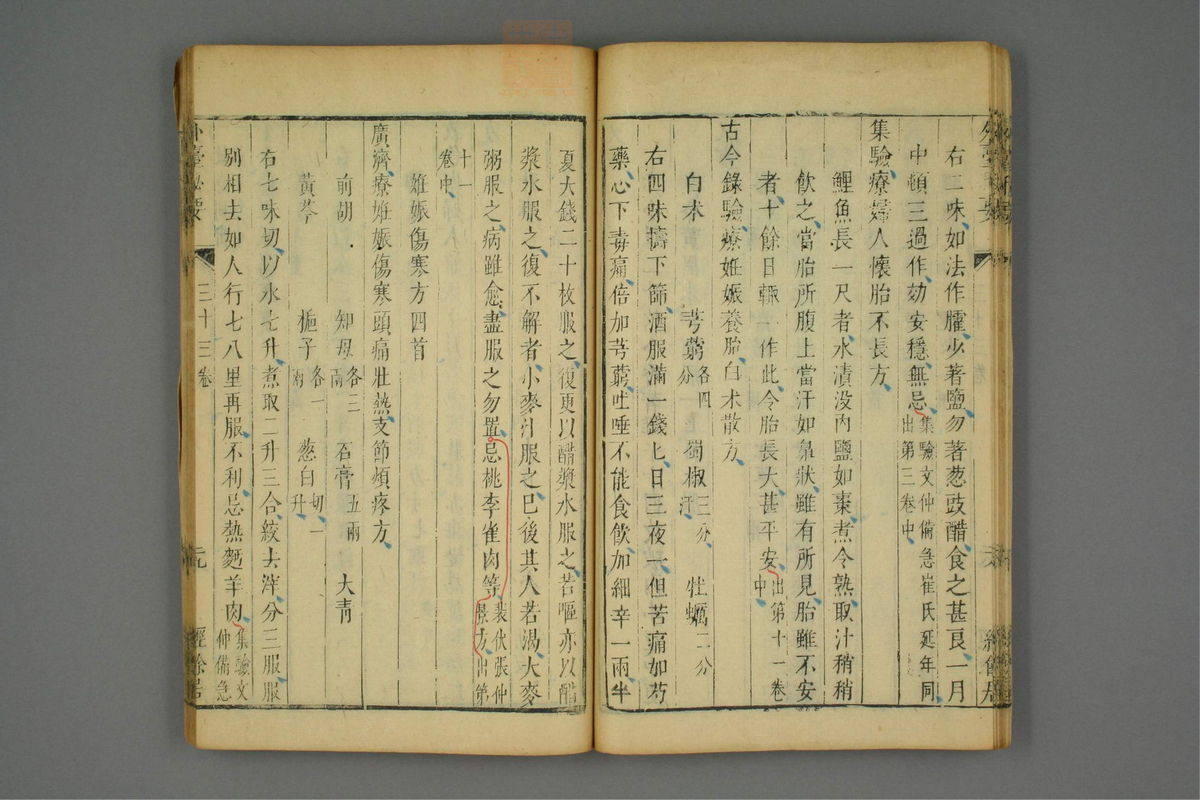 右二味如法作臛少著鹽勿著葱豉醋食之甚良一月
中頓三過作効安穩無忌集驗文仲備急崔氏延年同出第三卷中
集驗療婦人懷胎不長方
鯉魚長一尺者水漬没内鹽如棗煮令熟取汁稍稍
飲之當胎所腹上當汗如鼻狀雖有所見胎雖不安
者十餘日輙一作此令胎長大甚平安出第十一卷中
古今錄驗療妊娠養胎白术散方
白术 芎藭各四分 蜀椒三分汗 牡蠣二分
右四味擣下篩酒服滿一錢匕日三夜一但苦痛加芍
藥心下毒痛倍加芎藭吐唾不能食飲加細辛一兩半
夏大錢二十枚服之復更以醋漿水服之若嘔亦以醋
漿水服之復不解者小麥汁服之已後其人若渴大麥
粥服之病雖愈盡服之勿置忌桃李雀肉等裴伏張仲景方出第
十一卷中
妊娠傷寒方四首
廣濟療妊娠傷寒頭痛壯熱支節煩疼方
前胡 知母各三兩 石膏五兩 大青
黃芩 梔子各一兩 葱白切一升
右七味切以水七升煮取二升三合絞去滓分三服服
別相去如人行七八里再服不利忌熱麪羊肉集驗文仲備急
外臺秘要 三十三卷